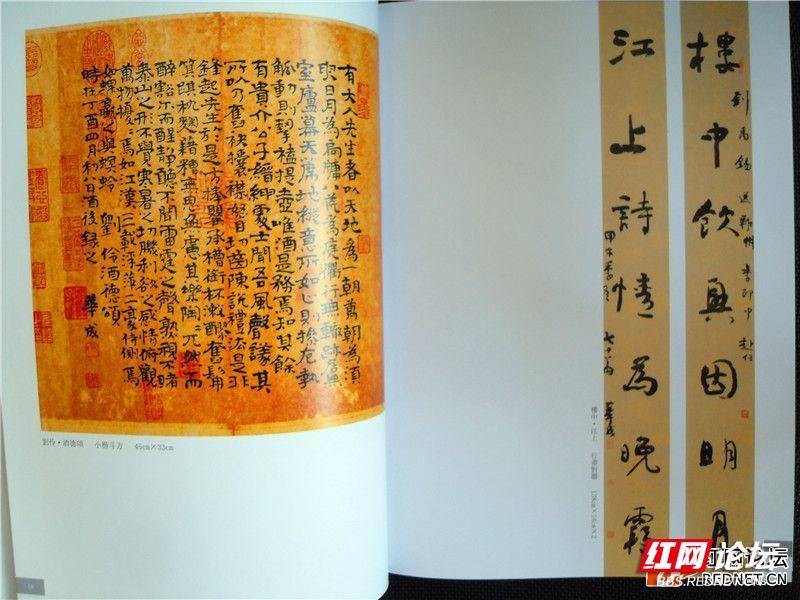 有大人先生者以天地為一朝萬朝為須
臾日月為扃牖八荒為庭衢行無轍跡居無
室廬幕天席地縱意所如止則操卮執
觚動則挈榼提壺唯酒是務焉知其餘
有貴介公子縉紳處士聞吾風聲議其
所以乃奮袂攘襟怒目切齒陳說禮法是非
鋒起先生於是方捧罌承槽銜杯漱醪奮髯
箕踞枕麴藉糟無思無慮其樂陶〻兀然而
醉豁尔而醒靜聽不聞雷霆之聲熟視不睹
泰山之形不覺寒暑之切肌利欲之感情俯觀
萬物擾〻焉如江漢之載浮萍二豪侍側焉
如蜾蠃之與螟蛉 劉伶酒德頌
時在丁酉四月初八日酒後錄之 華成
劉伶·酒德頌 小楷斗方 45cm×33cm
樓中飲興因明月
劉禹錫 送蘄州李郎中赴任
江上詩情為晚霞
甲午 華成
行書對聯
红网论坛
BBS.REDNET.CN